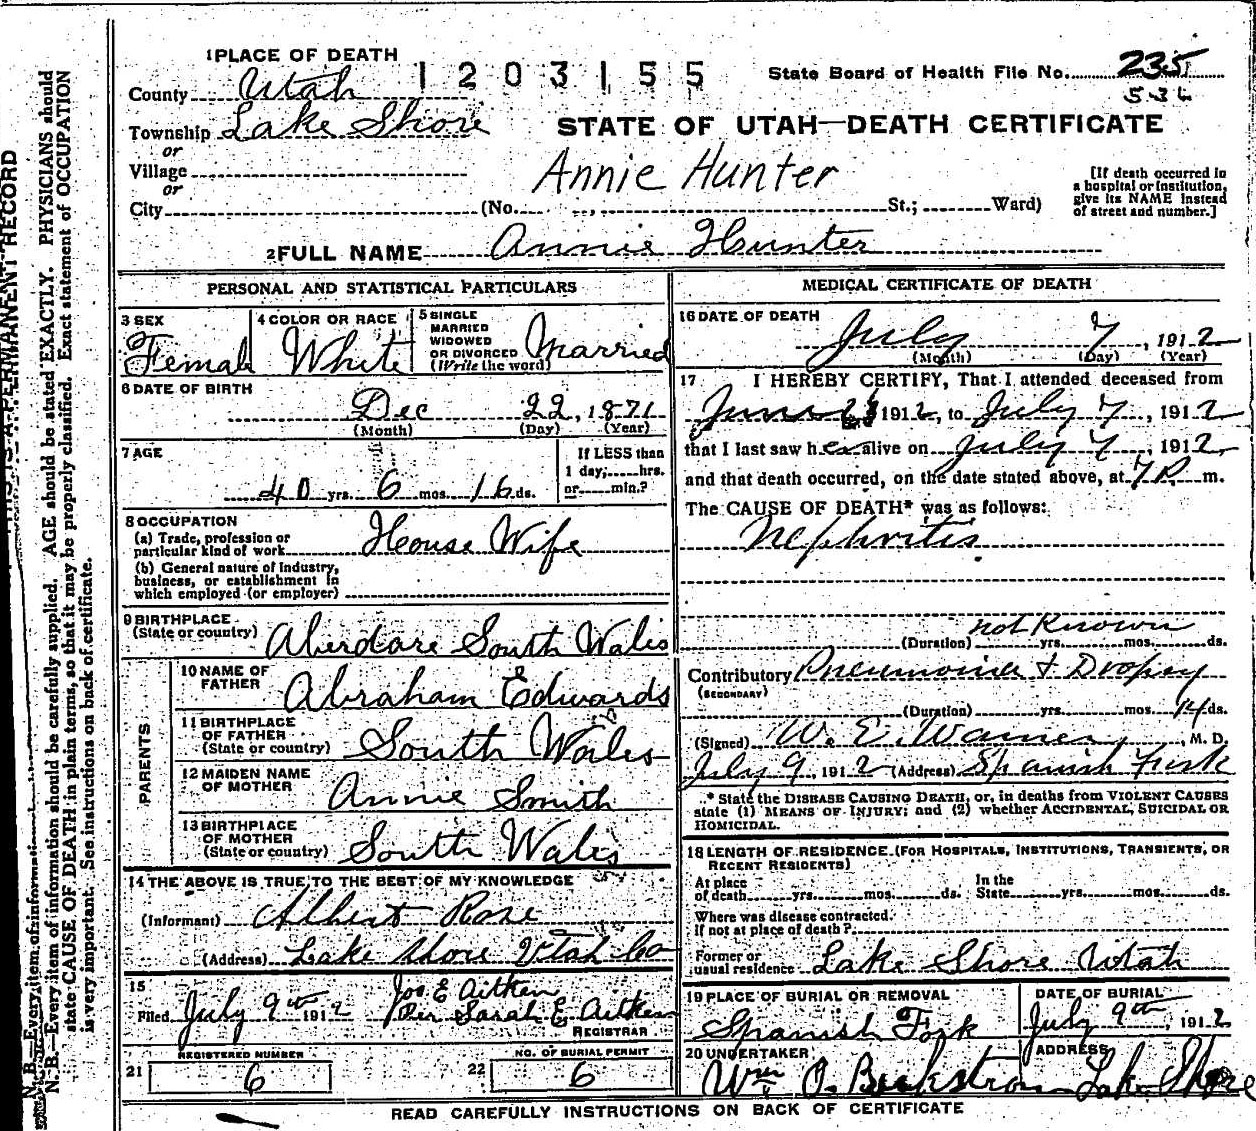 1 PLACE OF DEATH
1 2 0 3 1 5 5
State Board of Health File No. 235
County Utah
Township Lake Shore
STATE OF UTAH—DEATH CERTIFICATE
or
Village
Annie Hunter
or
City (No. St.; Ward)
[If death occurred in
a hospital or institution,
give its NAME instead
of street and number.]
2 FULL NAME Annie Hunter
PERSONAL AND STATISTICAL PARTICULARS
3 SEX
Female
4 COLOR OR RACE
White
5 SINGLE
MARRIED
WIDOWED
OR DIVORCED
(Write the word)
Married
6 DATE OF BIRTH
Dec 22, 1871
(Month) (Day) (Year)
7 AGE
40 yrs. 6 mos. 16 ds.
If LESS than
1 day, hrs.
or min.?
8 OCCUPATION
(a) Trade, profession or
particular kind of work House Wife
(b) General nature of industry,
business, or establishment in
which employed (or employer)
9 BIRTHPLACE
(State or country) Aberdare South Wales
PARENTS
10 NAME OF
FATHER Abraham Edwards
11 BIRTHPLACE
OF FATHER
(State or country) South Wales
12 MAIDEN NAME
OF MOTHER Annie Smith
13 BIRTHPLACE
OF MOTHER
(State or country) South Wales
14 THE ABOVE IS TRUE TO THE BEST OF MY KNOWLEDGE
(Informant) Albert Rose
(Address) Lake Shore Utah Co
15
Filed July 9th 1912 Jos E Aitken
Per Sarah E Aitken
REGISTRAR
21 REGISTERED NUMBER
6
22 NO. OF BURIAL PERMIT
6
MEDICAL CERTIFICATE OF DEATH
16 DATE OF DEATH
July 7, 1912
(Month) (Day) (Year)
17 I HEREBY CERTIFY, That I attended deceased from
June 23 1912, to July 7, 1912
that I last saw her alive on July 7, 1912
and that death occurred, on the date stated above, at 7 P. m.
The CAUSE OF DEATH* was as follows:
Nephritis
not Known
(Duration) yrs. mos. ds.
Contributory Pneumonia & Dropsy
(SECONDARY)
(Duration) yrs. mos. 14 ds.
(Signed) W. E. Warner, M. D.
July 9, 1912 (Address) Spanish Fork
* State the DISEASE CAUSING DEATH, or, in deaths from VIOLENT CAUSES
state (1) MEANS OF INJURY; and (2) whether ACCIDENTAL, SUICIDAL OR
HOMICIDAL.
18 LENGTH OF RESIDENCE (FOR HOSPITALS, INSTITUTIONS, TRANSIENTS, OR
RECENT RESIDENTS)
At place
of death yrs. mos. ds. In the
State yrs. mos. ds.
Where was disease contracted
If not at place of death?
Former or
usual residence Lake Shore Utah
19 PLACE OF BURIAL OR REMOVAL
Spanish Fork
DATE OF BURIAL
July 9th, 1912
20 UNDERTAKER
Wm O. Beckstrom
ADDRESS
Lake Shore
READ CAREFULLY INSTRUCTIONS ON BACK OF CERTIFICATE
N. B.—Every item of information should be carefully supplied. AGE should be stated EXACTLY. PHYSICIANS should
state CAUSE OF DEATH in plain terms, so that it may be properly classified. Exact statement of OCCUPATION
is very important. See instructions on back of certificate.